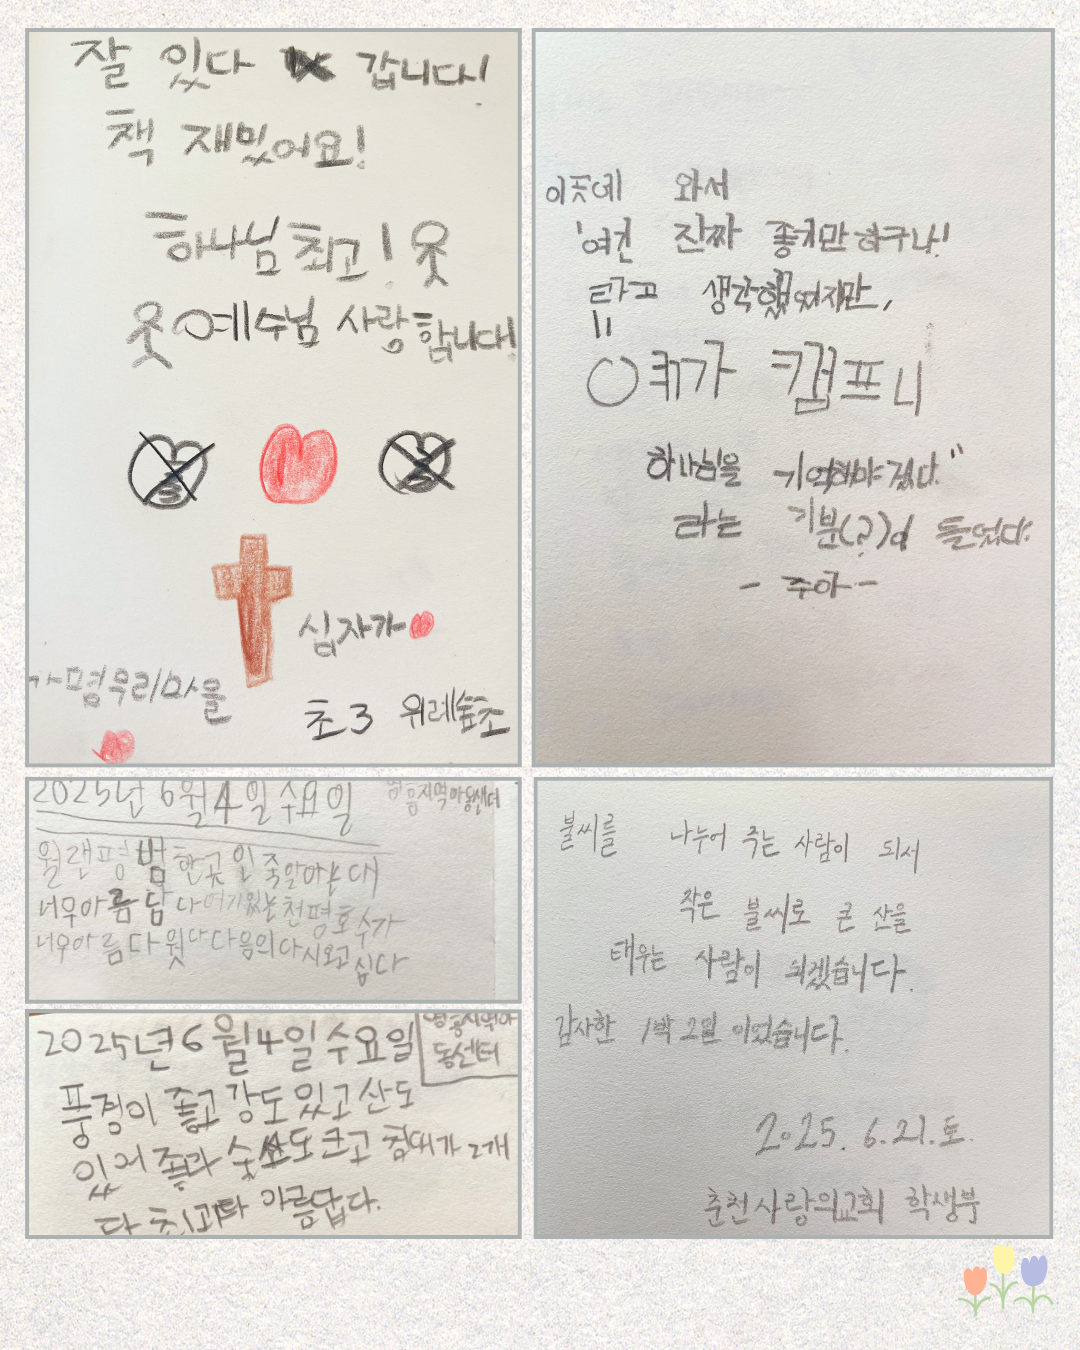 잘 있다 갑니다!
책 재밌어요!
하나님 최고! 옷
옷 예수님 사랑합니다!
십자가
가평우리마을
초3 위례숲초
이곳에 와서
'여긴 진짜 좋기만 하구나!
라고 생각했었지만,
"여기가 캠프니
하나님을 기억해야겠다."
라는 기분(?)이 들었다.
- 주아 -
2025년 6월 4일 수요일
지역아동센터
월랜평범한곳인줄알아는대
너무아름답다여기있는천평호수가
너무아름다웟다다음의다시오고
십다
2025년 6월 4일 수요일
지역아
동센터
풍경이 좋고 강도 있고 산도
있어 좋과 숫 도 크고 침대가 2개
다 최고다 아름답다.
불씨를 나누어 주는 사람이 되서
작은 불씨로 큰 산을
태우는 사람이 되겠습니다.
감사한 1박 2일 이었습니다.
2025. 6. 21. 토.
춘천사랑의교회 학생부